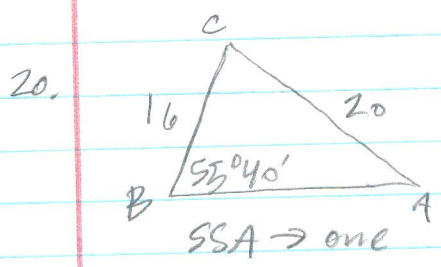 C
20.
16
20
55°40'
B
A
SSA → one